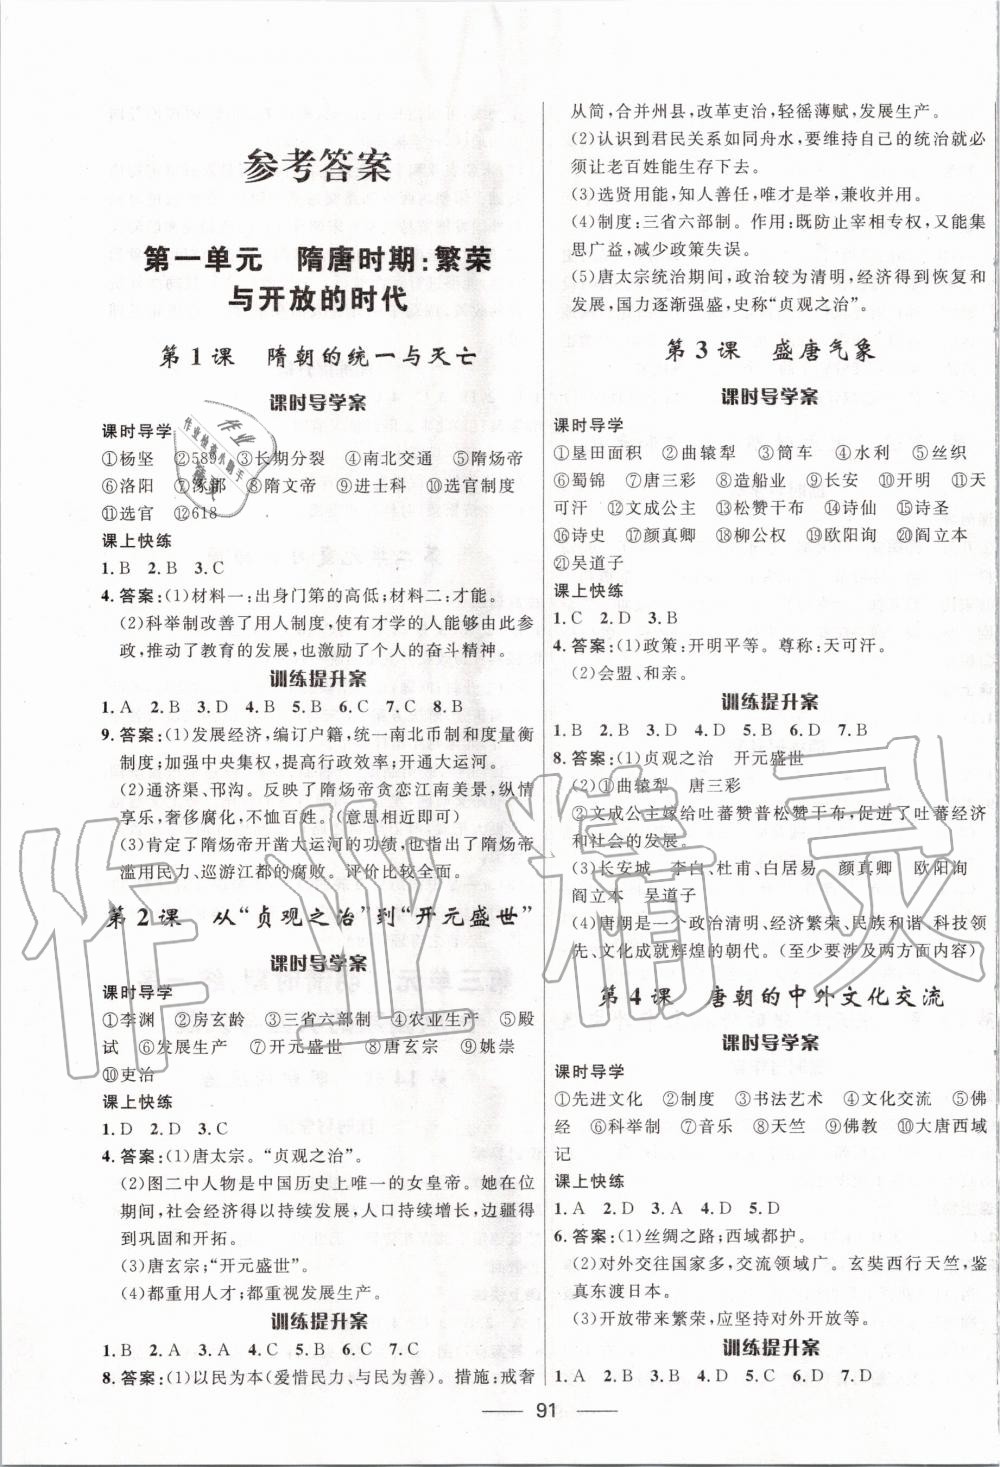 参考答案
第一单元 隋唐时期:繁荣
与开放的时代
第1课 隋朝的统一与灭亡
课时导学案
课时导学
①杨坚 ②589 ③长期分裂 ④南北交通 ⑤隋炀帝
⑥洛阳 ⑦涿郡 ⑧隋文帝 ⑨进士科 ⑩选官制度
⑪选官 ⑫618
课上快练
1.B 2.B 3.C
4.答案:(1)材料一:出身门第的高低;材料二:才能。
(2)科举制改善了用人制度,使有才学的人能够由此参
政,推动了教育的发展,也激励了个人的奋斗精神。
训练提升案
1.A 2.B 3.D 4.B 5.B 6.C 7.C 8.B
9.答案:(1)发展经济,编订户籍,统一南北币制和度量衡
制度;加强中央集权,提高行政效率;开通大运河。
(2)通济渠、邗沟。反映了隋炀帝贪恋江南美景,纵情
享乐,奢侈腐化,不恤百姓。(意思相近即可)
(3)肯定了隋炀帝开凿大运河的功绩,也批评了隋炀帝
滥用民力、巡游江都的腐败。评价比较全面。
第2课 从“贞观之治”到“开元盛世”
课时导学案
课时导学
①李渊 ②房玄龄 ③三省六部制 ④农业生产 ⑤殿
试 ⑥发展生产 ⑦开元盛世 ⑧唐玄宗 ⑨姚崇
⑩吏治
课上快练
1.D 2.D 3.C
4.答案:(1)唐太宗。“贞观之治”。
(2)图二中人物是中国历史上唯一的女皇帝。她在位
期间,社会经济得以持续发展,人口持续增长,边疆得
到巩固和开拓。
(3)唐玄宗;“开元盛世”。
(4)都重用人才;都重视发展生产。
训练提升案
1.B 2.A 3.A 4.C 5.B 6.C 7.C
8.答案:(1)以民为本(爱惜民力、与民为善)。措施:戒奢
从简,合并州县,改革吏治,轻徭薄赋,发展生产。
(2)认识到君民关系如同舟水,要维持自己的统治就必
须让老百姓能生存下去。
(3)选贤用能,知人善任,唯才是举,兼收并用。
(4)制度:三省六部制。作用:既防止宰相专权,又能集
思广益,减少政策失误。
(5)唐太宗统治期间,政治较为清明,经济得到恢复和
发展,国力逐渐强盛,史称“贞观之治”。
第3课 盛唐气象
课时导学案
课时导学
①垦田面积 ②曲辕犁 ③筒车 ④水利 ⑤丝织
⑥蜀锦 ⑦唐三彩 ⑧造船业 ⑨长安 ⑩开明 ⑪天
可汗 ⑫文成公主 ⑬松赞干布 ⑭诗仙 ⑮诗圣
⑯诗史 ⑰颜真卿 ⑱柳公权 ⑲欧阳询 ⑳阎立本
㉑吴道子
课上快练
1.C 2.D 3.B
4.答案:(1)政策:开明平等。尊称:天可汗。
(2)会盟、和亲。
训练提升案
1.B 2.B 3.D 4.D 5.B 6.D 7.B
8.答案:(1)贞观之治 开元盛世
(2)①曲辕犁 唐三彩
②文成公主嫁给吐蕃赞普松赞干布,促进了吐蕃经济
和社会的发展。
(3)长安城 李白、杜甫、白居易 颜真卿 欧阳询
阎立本 吴道子
(4)唐朝是一个政治清明、经济繁荣、民族和谐、科技领
先、文化成就辉煌的朝代。(至少要涉及两方面内容)
第4课 唐朝的中外文化交流
课时导学案
课时导学
①先进文化 ②制度 ③书法艺术 ④文化交流 ⑤佛
经 ⑥科举制 ⑦音乐 ⑧天竺 ⑨佛教 ⑩大唐西域
记
课上快练
1.A 2.D 3.A 4.D 5.D
6.答案:(1)丝绸之路;西域都护。
(2)对外交往国家多,交流领域广。玄奘西行天竺,鉴
真东渡日本。
(3)开放带来繁荣,应坚持对外开放等。
训练提升案
1.A 2.D 3.B 4.B 5.D 6.D 7.D
91
作业精灵
作业
作业检查小助手
精灵